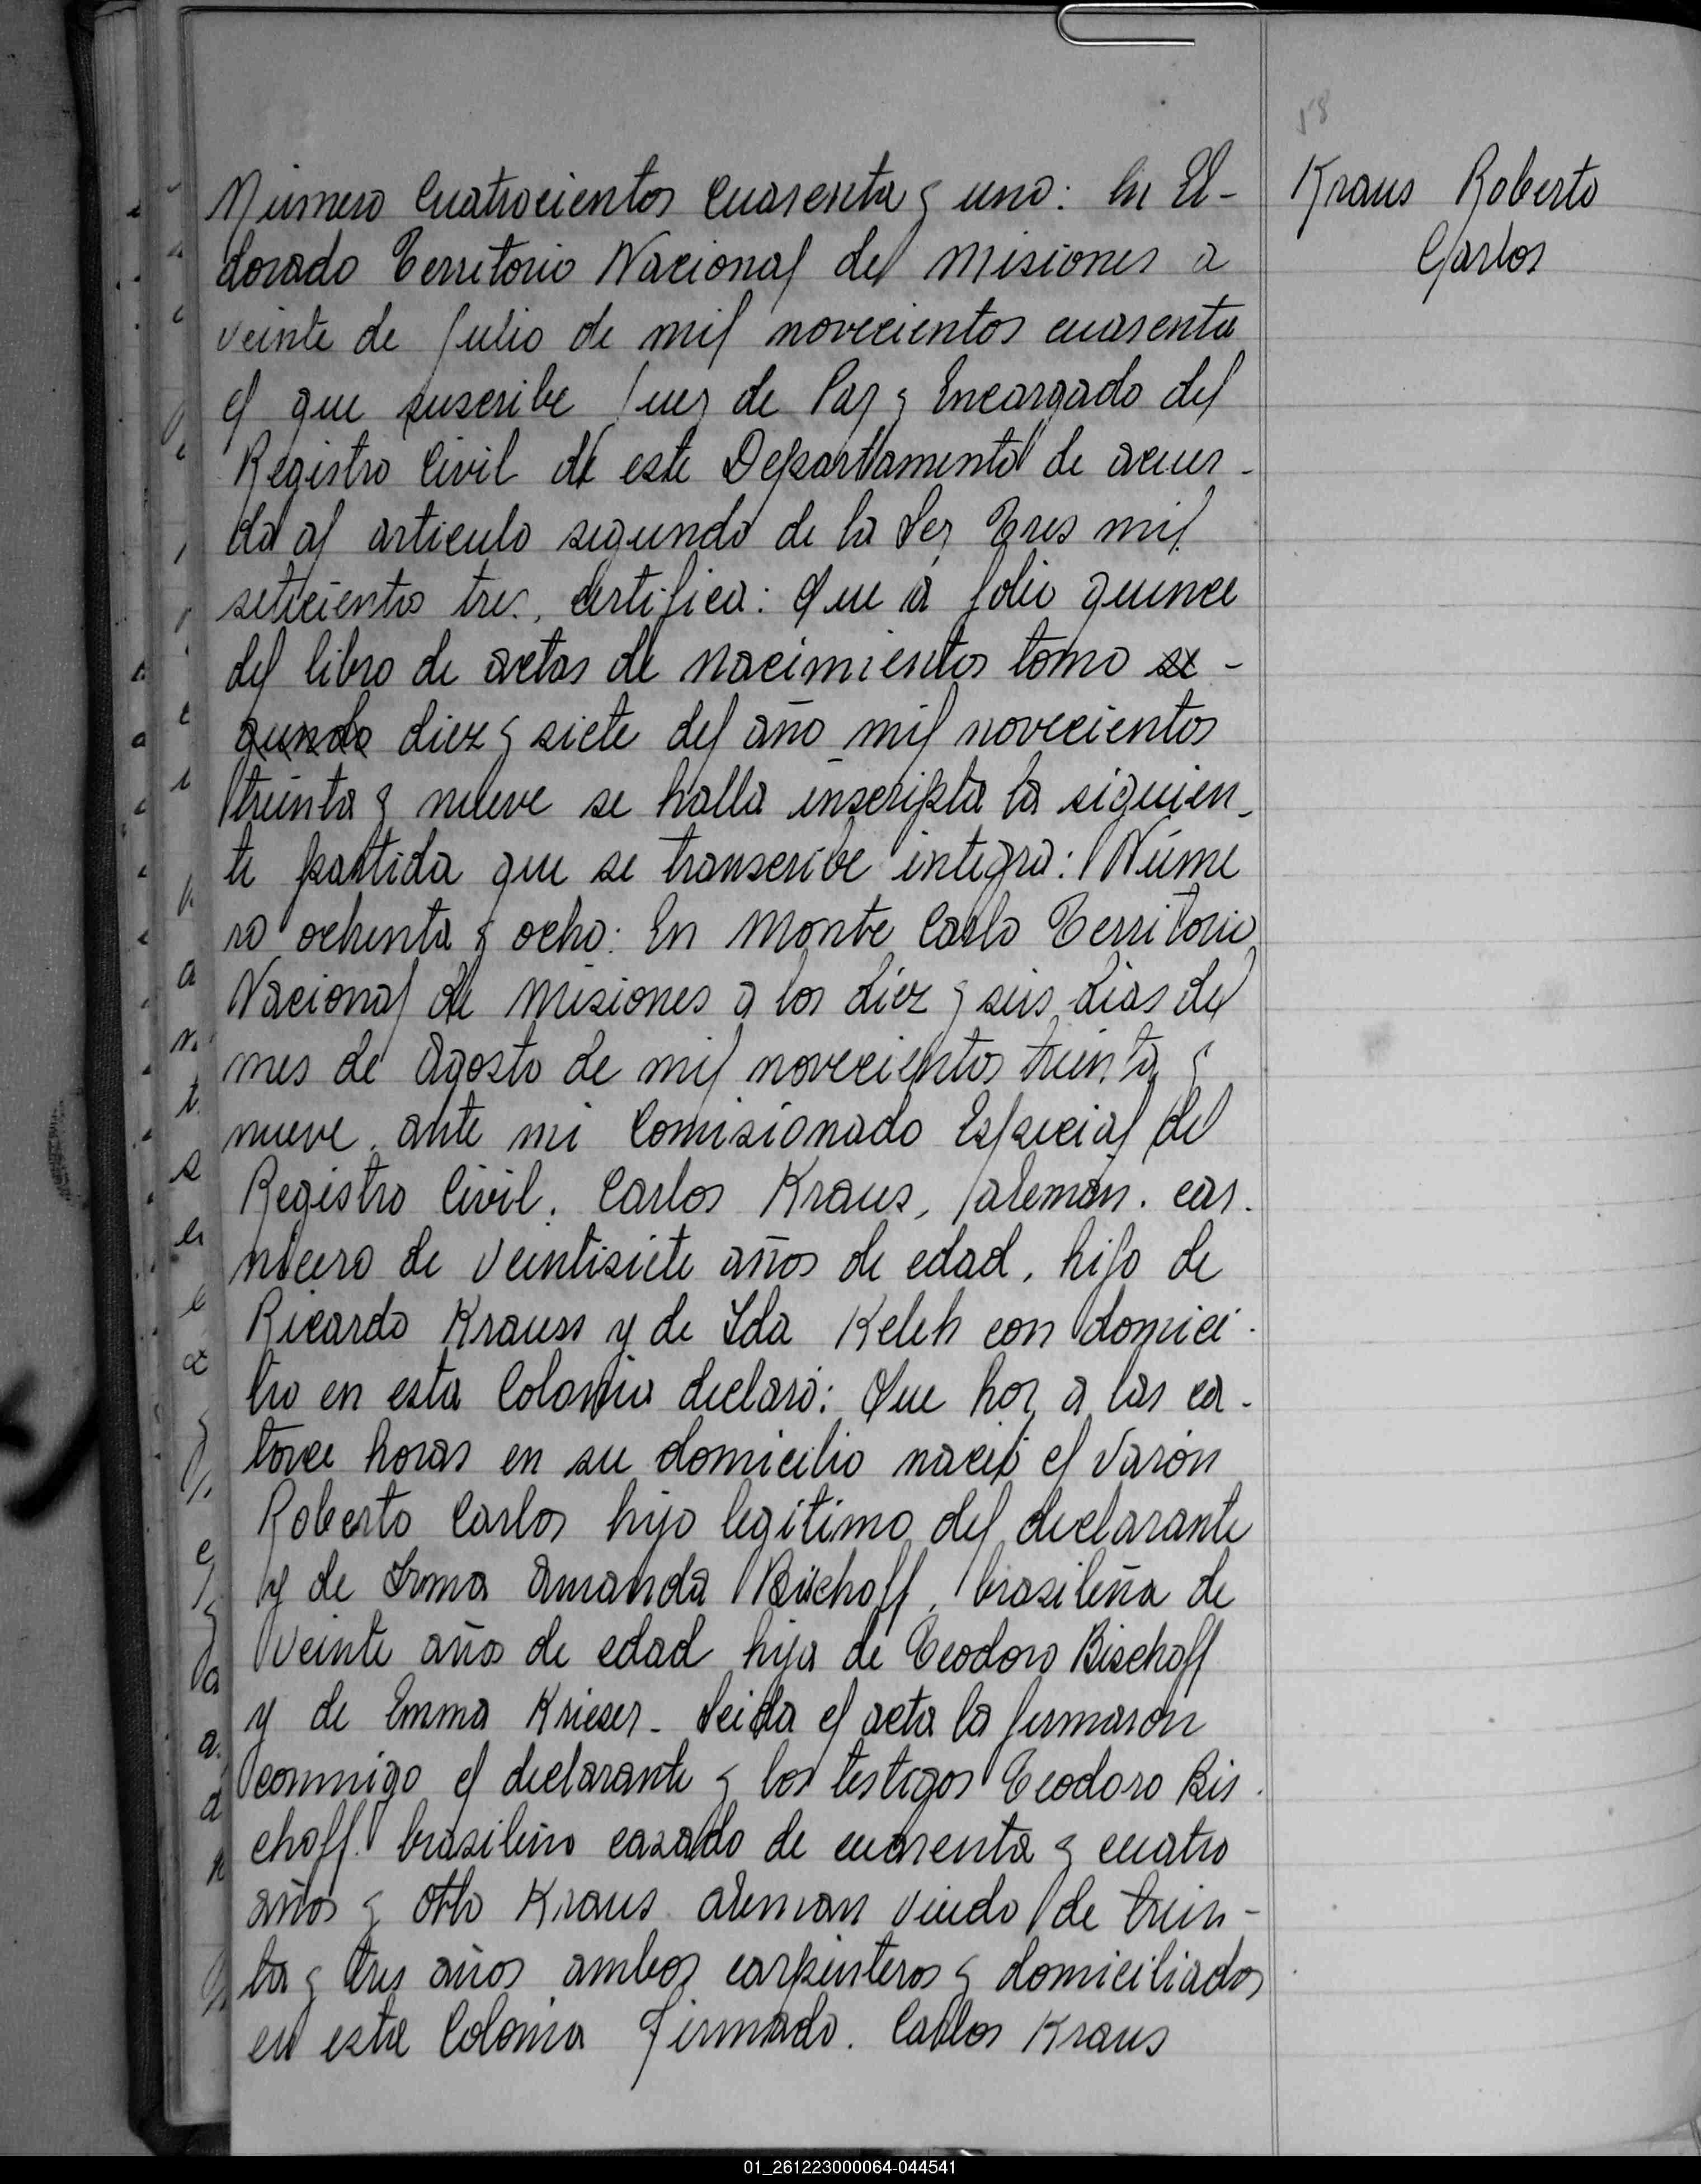 58
Kraus Roberto
Carlos
Número Cuatrocientos Cuarenta y uno: En El-
dorado Territorio Nacional de Misiones a
veinte de Julio de mil novecientos cuarenta
el que suscribe Juez de Paz y Encargado del
Registro Civil de este Departamento de acuer-
do al articulo segundo de la Ley Tres mil
setecientos tres, certifica: Que a folio quince
del libro de actas de nacimientos tomo se-
gundo diez y siete del año mil novecientos
treinta y nueve se halla inscripta la siguien-
te partida que se transcribe integra: Núme
ro ochenta y ocho: En Monte Carlo Territorio
Nacional de Misiones a los diez y seis dias del
mes de Agosto de mil novecientos treinta y
nueve, ante mi Comisionado Especial del
Registro Civil. Carlos Kraus, aleman. car.
nicero de veintisiete años de edad, hijo de
Ricardo Krauss y de Ida Kelch con domici-
lio en esta Colonia declaró: Que hoy a las ca-
torce horas en su domicilio nació el varón
Roberto Carlos hijo legítimo del declarante
y de Irma Amanda Bischoff, brasileña de
veinte años de edad hija de Teodoro Bischoff
y de Emma Krieser- Leida el acta la firmaron
conmigo el declarante y los testigos Teodoro Bis
choff. brasileño casado de cuarenta y cuatro
años y Otto Kraus aleman viudo de trein-
ta y tres años ambos carpinteros y domiciliados
en esta Colonia Firmado. Carlos Kraus
01_261223000064-044541